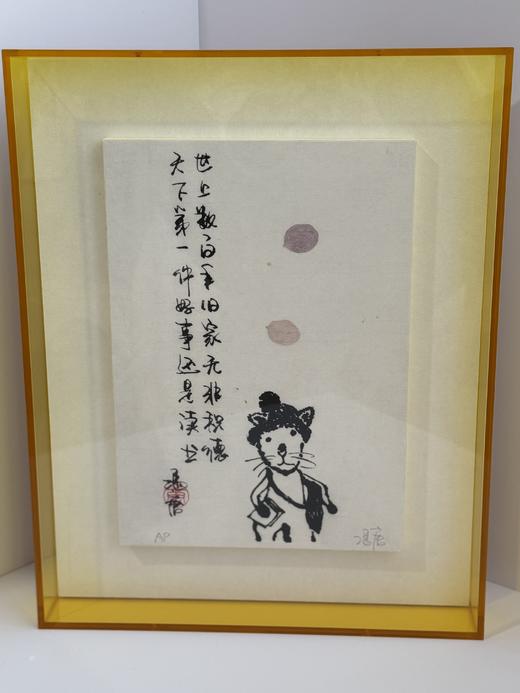 世上数百年旧家无非积德
天下第一件好事还是读书
冯唐
AP
冯唐